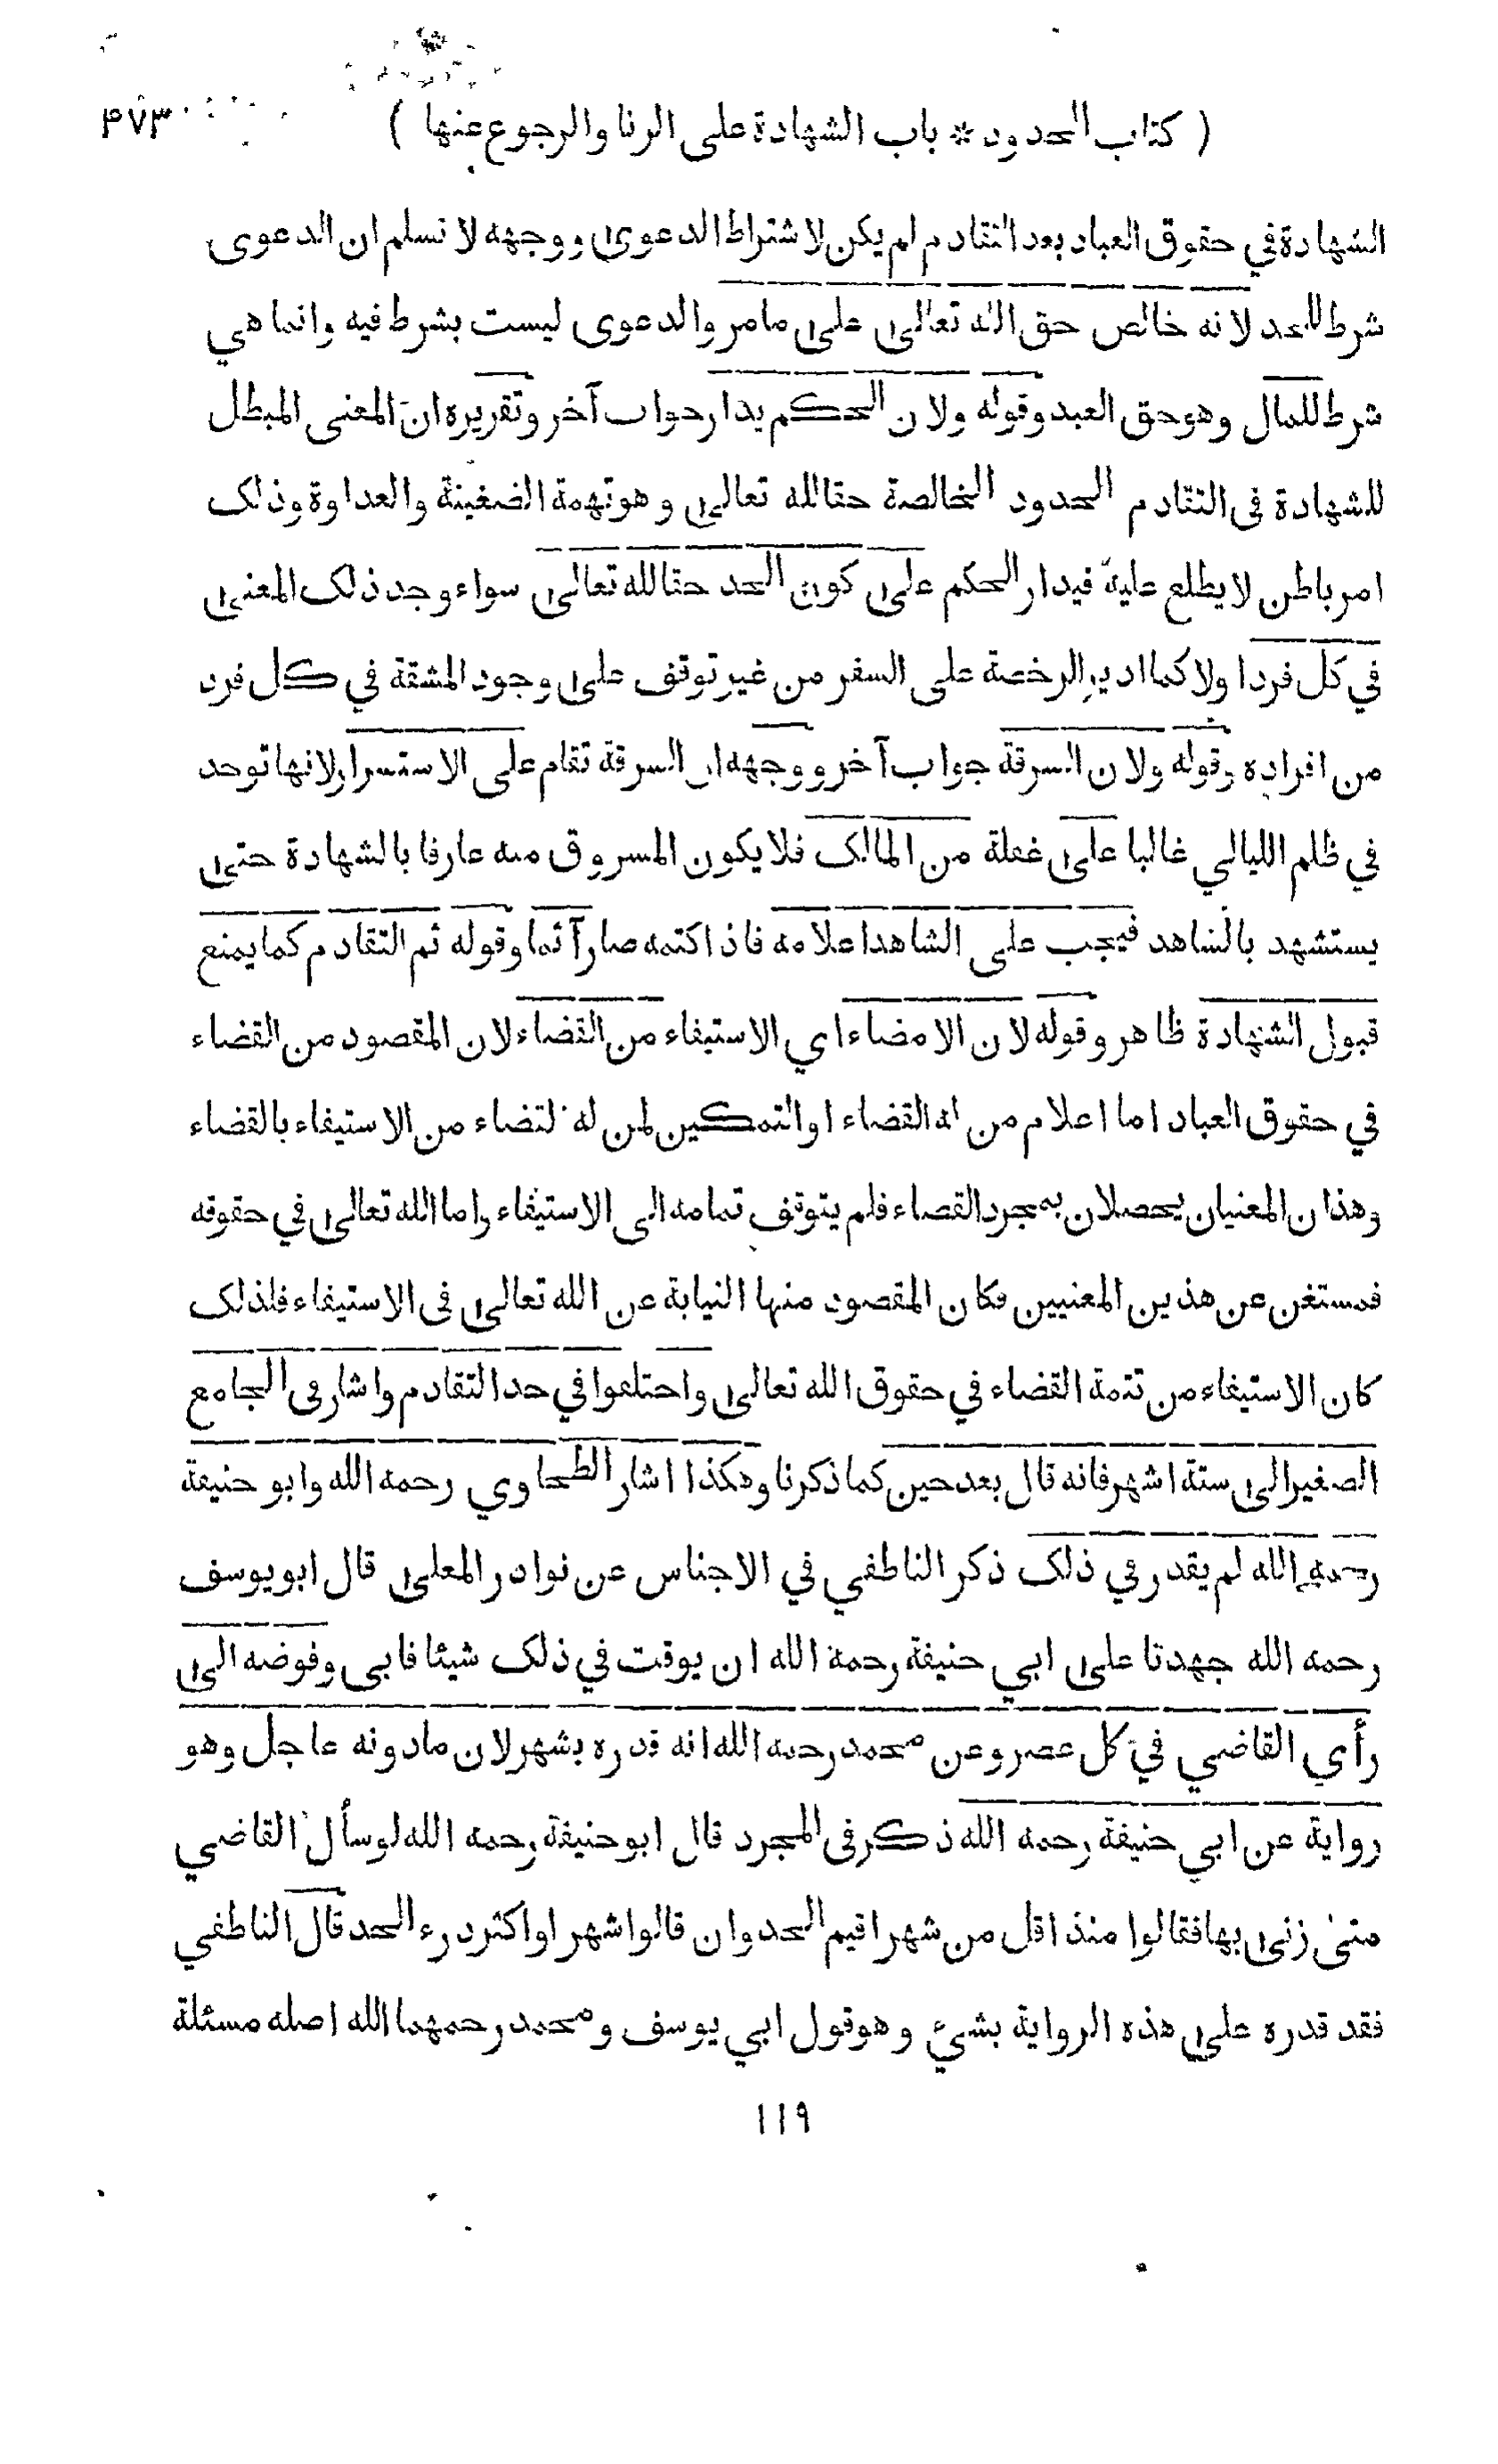 ( كتاب الحدود * باب الشهادة على الزنا والرجوع عنها ) ۴۷۳
الشهادة في حقوق العباد بعد التقادم لم يكن لاشتراط الدعوى ووجهه لا نسلم ان الدعوى
شرط للحد لانه خالص حق الله تعالى على مامر والدعوى ليست بشرط فيه وانما هي
شرط للمال وهو حق العبد وقوله ولان الحكم يدار جواب آخر وتقريره ان المعنى المبطل
للشهادة في التقادم الحدود الخالصة حقا لله تعالى وهو تهمة الضغينة والعداوة وذلك
امر باطن لا يطلع عليه فيدار الحكم على كون الحد حقا لله تعالى سواء وجد ذلك المعنى
في كل فرد اولا كما ادير الرخصة على السفر من غير توقف على وجود المشقة في كل فرد
من افراده وقوله ولان السرقة جواب آخر ووجهه ان السرقة تقام على الاستسرار لانها توجد
في ظلم الليالي غالبا على غفلة من المالك فلا يكون المسروق منه عارفا بالشهادة حتى
يستشهد بالشاهد فيجب على الشاهد اعلامه فاذا كتمه صار آثما وقوله ثم التقادم كما يمنع
قبول الشهادة ظاهر وقوله لان الامضاء اي الاستيفاء من القضاء لان المقصود من القضاء
في حقوق العباد اما اعلام من له القضاء او التمكين لمن له القضاء من الاستيفاء بالقضاء
وهذان المعنيان يحصلان بمجرد القضاء فلم يتوقف تمامه الى الاستيفاء واما الله تعالى في حقوقه
فمستغن عن هذين المعنيين فكان المقصود منها النيابة عن الله تعالى في الاستيفاء فلذلك
كان الاستيفاء من تتمة القضاء في حقوق الله تعالى واختلفوا في حد التقادم واشار في الجامع
الصغير الى ستة اشهر فانه قال بعد حين كما ذكرنا وهكذا اشار الطحاوي رحمه الله وابو حنيفة
رحمه الله لم يقدر في ذلك ذكر الناطفي في الاجناس عن نوادر المعلى قال ابو يوسف
رحمه الله جهدنا على ابي حنيفة رحمة الله ان يوقت في ذلك شيئا فابى وفوضه الى
رأي القاضي في كل عصر وعن محمد رحمه الله انه قدره بشهر لان مادونه عاجل وهو
رواية عن ابي حنيفة رحمه الله ذكر في المجرد قال ابو حنيفة رحمه الله لو سأل القاضي
متى زنى بها فقالوا منذ اقل من شهر اقيم الحد وان قالوا شهر او اكثر درء الحد قال الناطفي
فقد قدره على هذه الرواية بشيء وهو قول ابي يوسف ومحمد رحمهما الله اصله مسئلة
۱۱۹